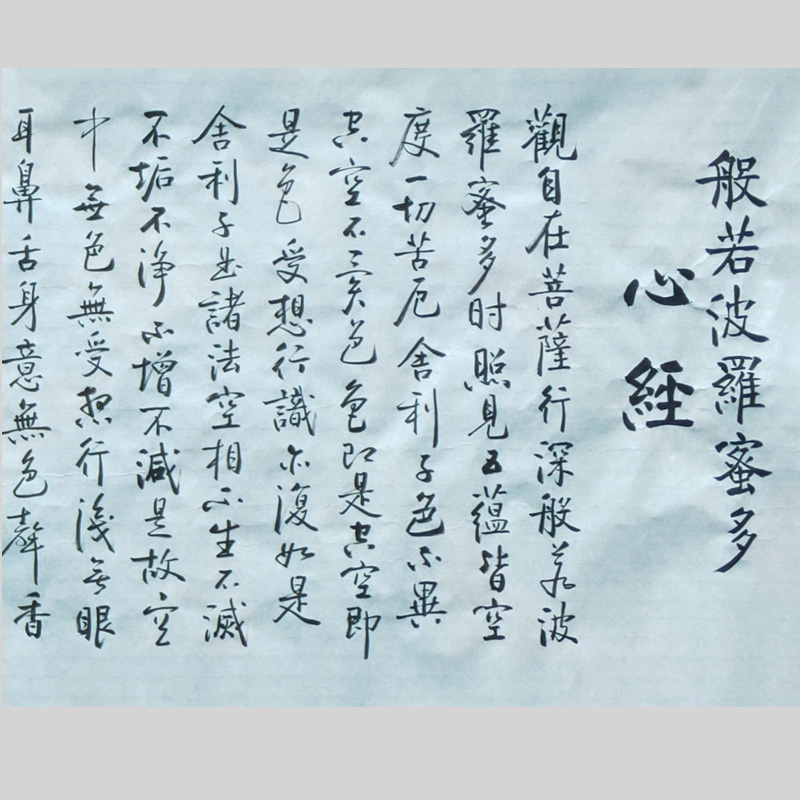 般若波羅蜜多
心經
觀自在菩薩行深般若波
羅蜜多时照見五蕴皆空
度一切苦厄舍利子色不異
空空不異色色即是空空即
是色受想行識亦復如是
舍利子是諸法空相不生不滅
不垢不淨不增不減是故空
中無色無受想行識無眼
耳鼻舌身意無色聲香